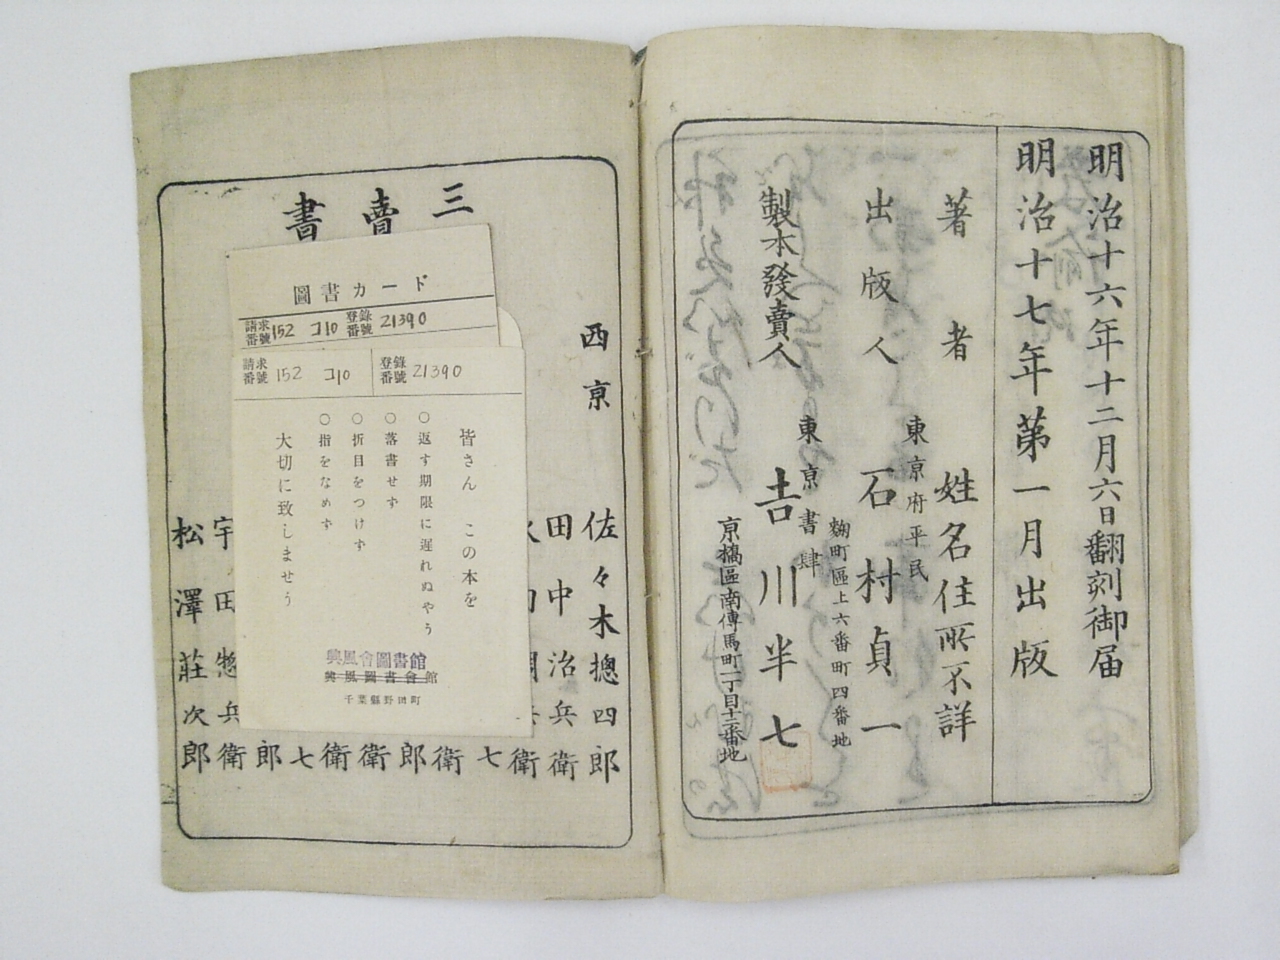 明治十六年十二月六日翻刻御届
明治十七年第一月出版
著者 姓名住所不詳
東京府平民
出版人 石村貞一
麹町區上六番町四番地
東京書肆
製本發賣人 吉川半七
京橋區南傳馬町一丁目十二番地
三賣書
西京
佐々木摠四郎
田中治兵衛
衛
七
衛
郎
衛
衛
七
郎
宇田惣兵衛
松澤莊次郎
圖書カード
請求番號 152 コ10 登錄番號 21390
請求番號 152 コ10 登錄番號 21390
皆さん この本を
○返す期限に遲れぬやう
○落書せず
○折目をつけず
○指をなめず
大切に致しませう
興風會圖書館
興風圖書會館
千葉縣野田町